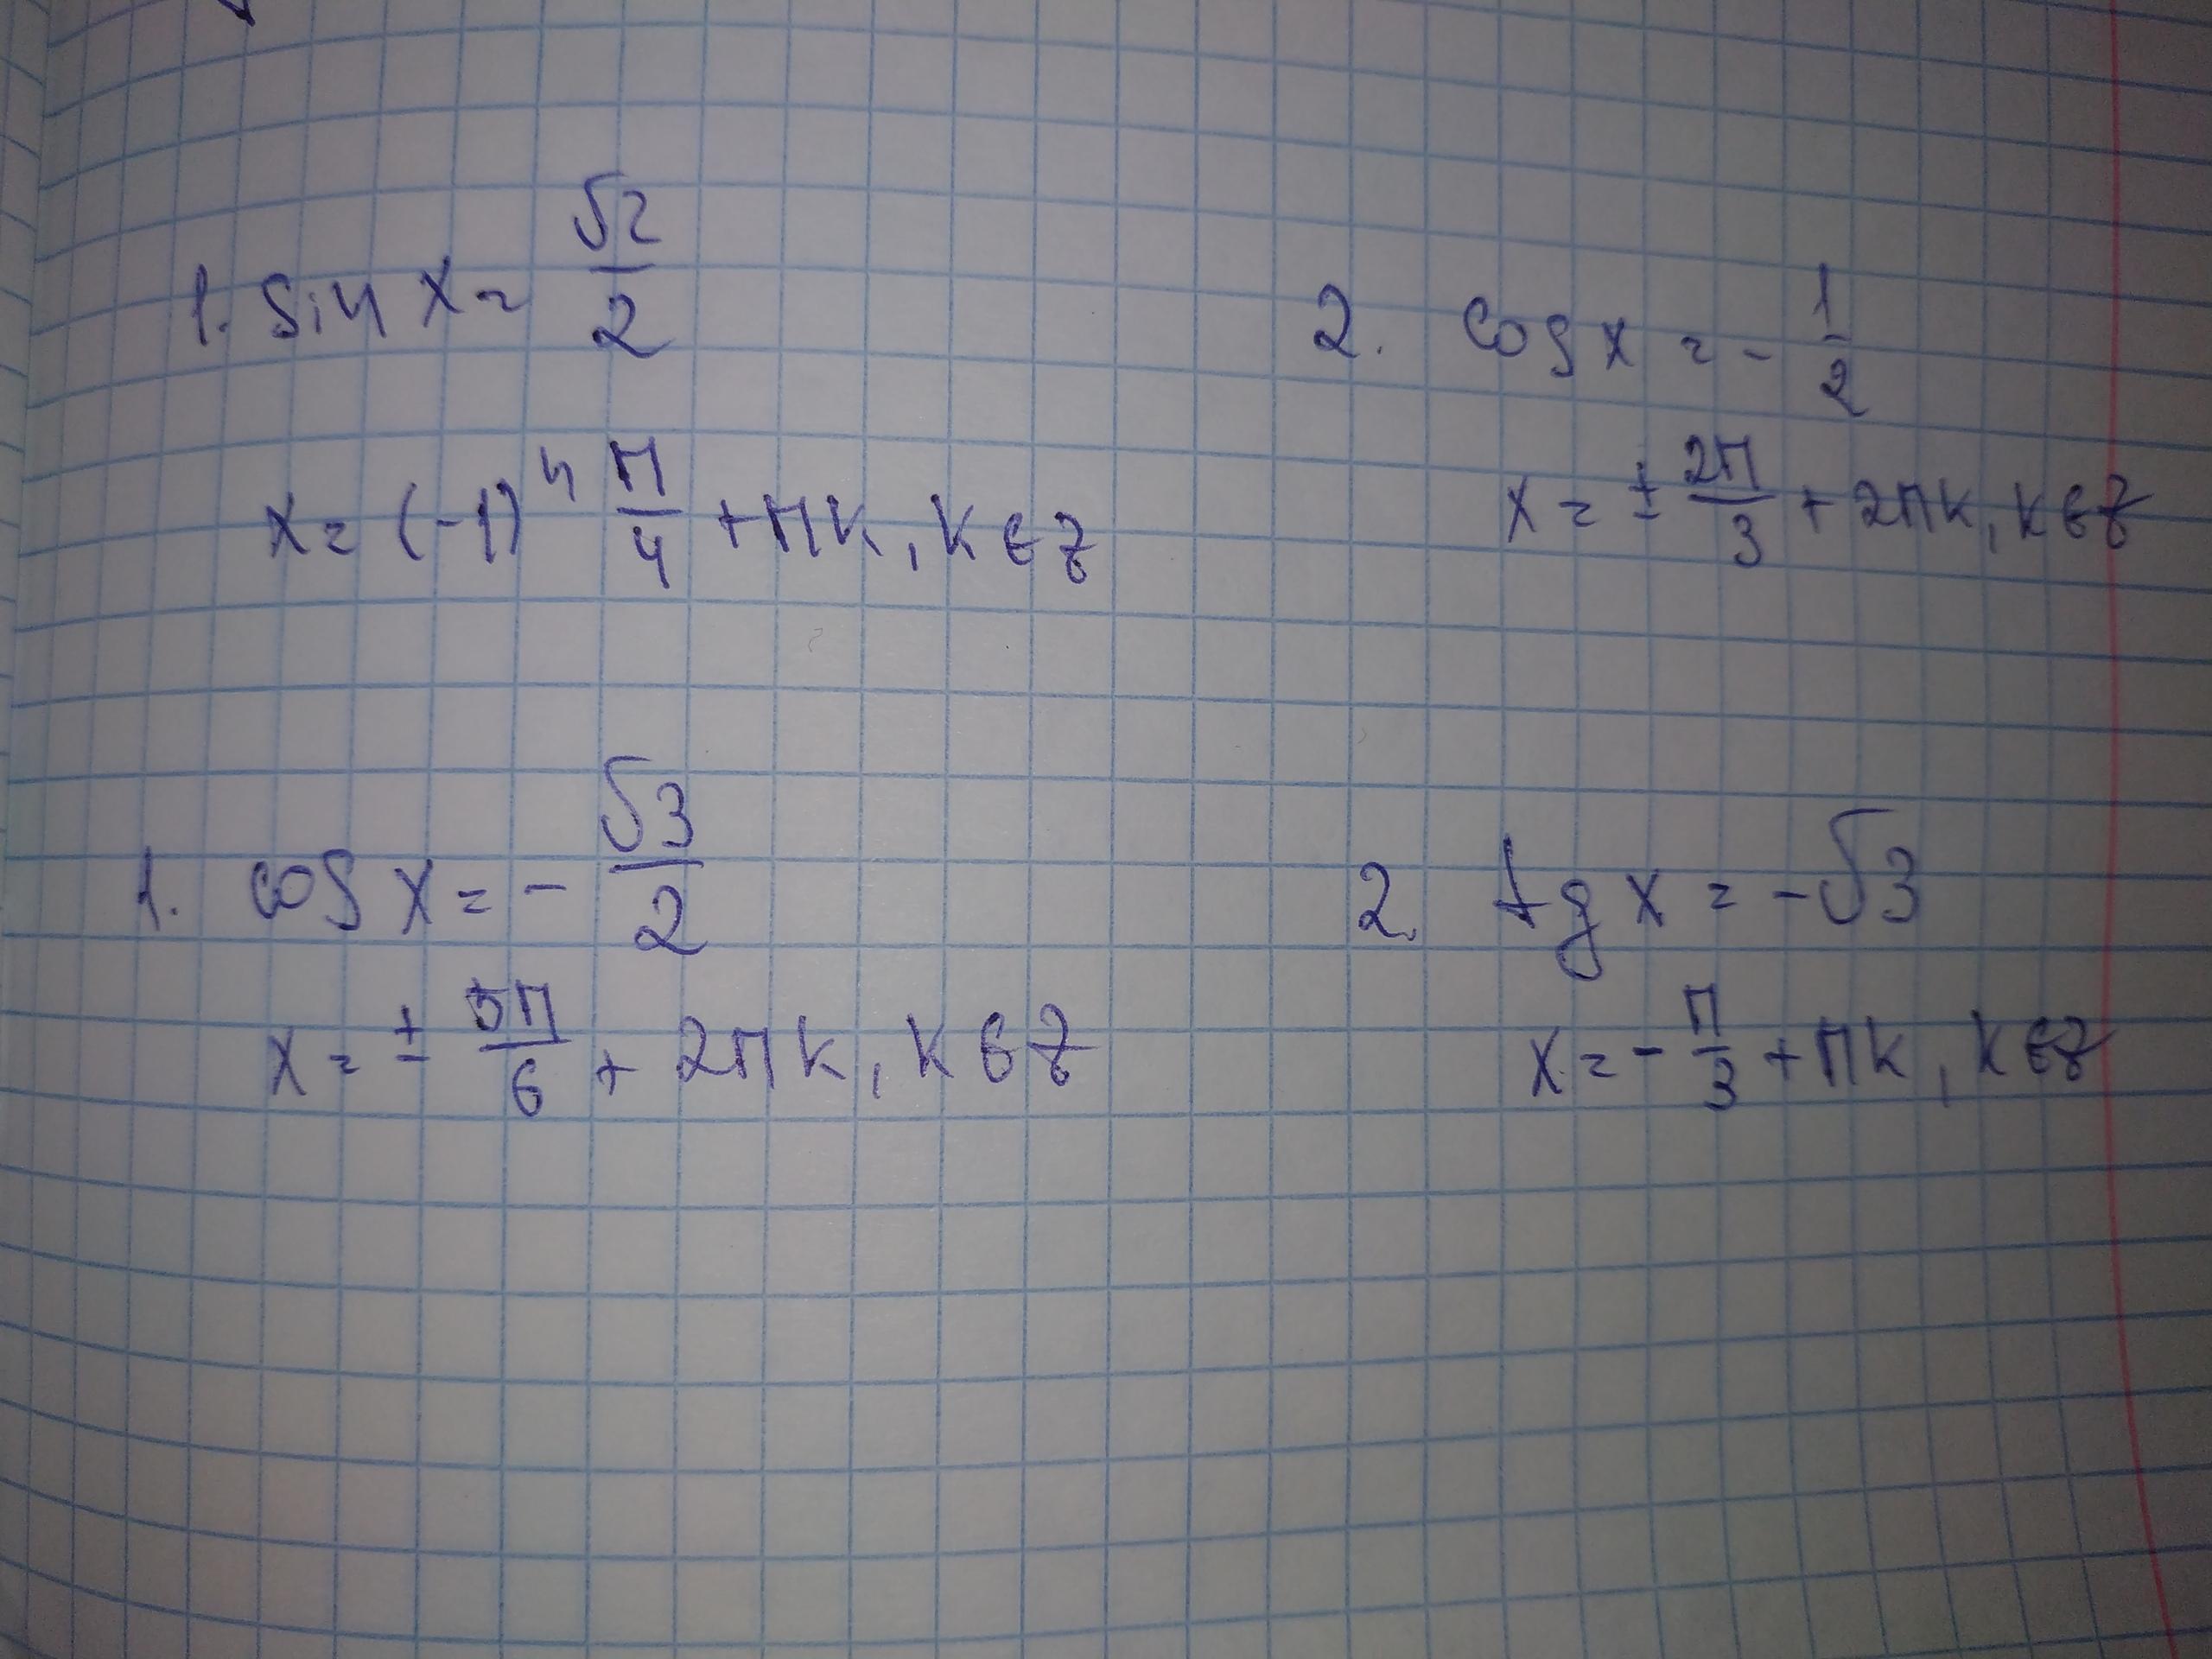 1. sin x = √2/2
x = (-1)ⁿ π/4 + πk, k ∈ z
2. cos x = - 1/2
x = ± 2π/3 + 2πk, k ∈ z
1. cos x = - √3/2
x = ± 5π/6 + 2πk, k ∈ z
2. tg x = -√3
x = - π/3 + πk, k ∈ z